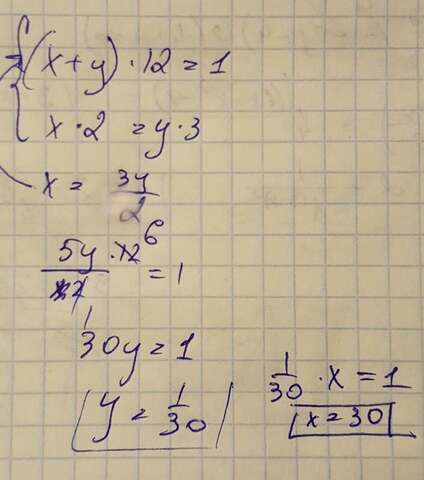 (x+y)·12=1
x·2=y·3
x=3y/2
5y·12/2=1
6
1
30y=1
y=1/30
1/30·x=1
x=30